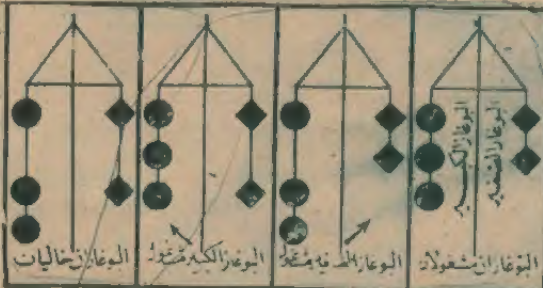 البوغاز الكبير
البوغاز الصغير
البوغازان مشغولان
البوغاز الصغير مشغول
البوغاز الكبير مشغول
البوغازان خاليات